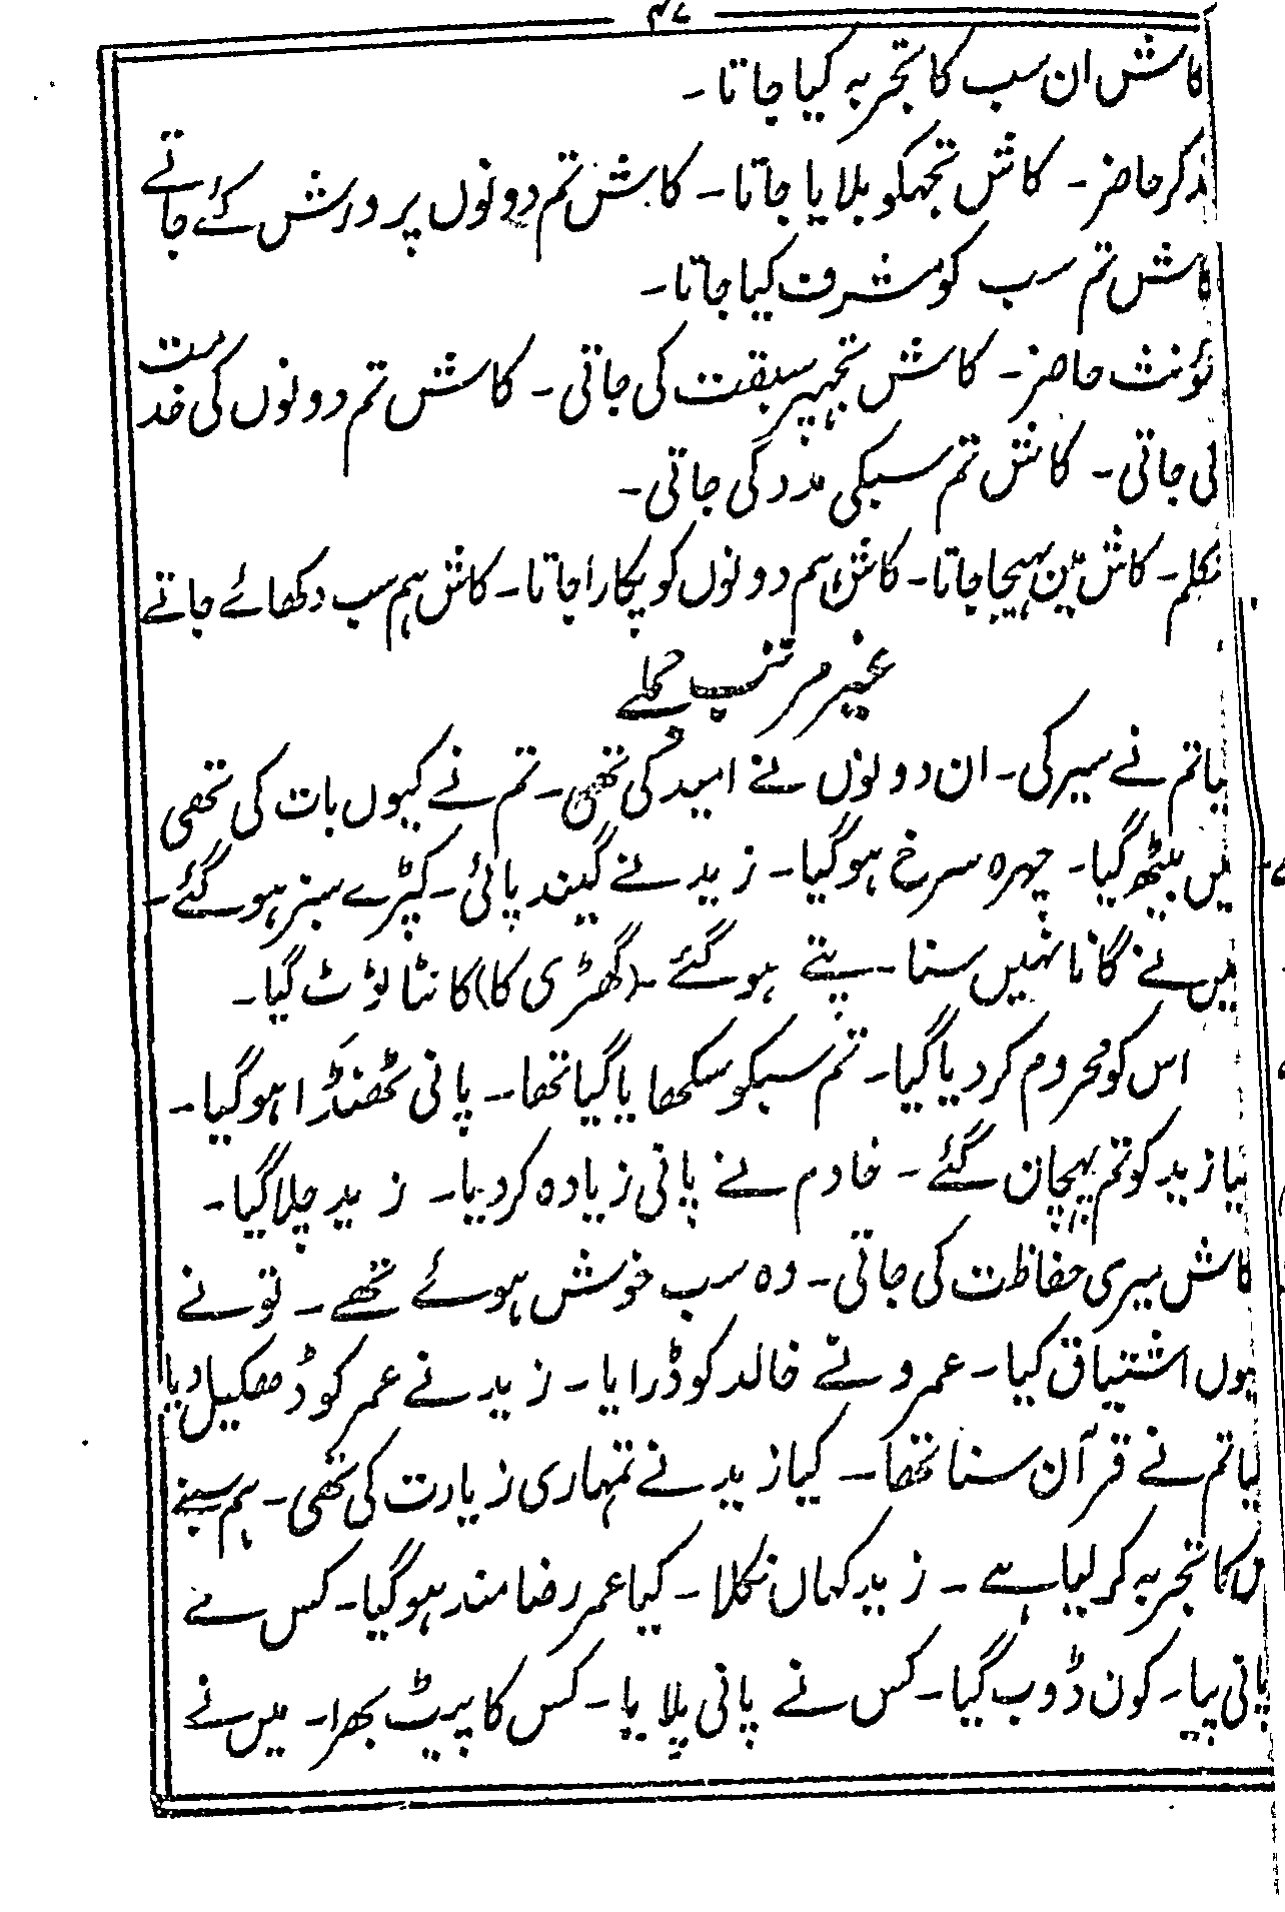 ۴۷
کاش ان سب کا تجربہ کیا جاتا۔
مذکر حاضر۔ کاش تجہکو بلایا جاتا۔ کاش تم دونوں پرورش کئے جاتے
کاش تم سب کو مشرف کیا جاتا۔
مؤنث حاضر۔ کاش تجہپر سبقت کی جاتی۔ کاش تم دونوں کی خدمت
لی جاتی۔ کاش تم سبکی مدد کی جاتی۔
متکلم۔ کاش مین بہیجا جاتا۔ کاش ہم دونوں کو پکارا جاتا۔ کاش ہم سب دکھائے جاتے
غیر مرتب جملے
کیا تم نے سیر کی۔ ان دونوں نے امید کی تھی۔ تم نے کیوں بات کی تھی
میں بیٹھ گیا۔ چہرہ سرخ ہو گیا۔ زید نے گیند پائی۔ کپڑے سبز ہو گئے۔
میں نے گانا نہیں سنا۔ پتے ہو گئے۔ (گھڑی کا) کانٹا ٹوٹ گیا۔
اس کو محروم کر دیا گیا۔ تم سبکو سکھایا گیا تھا۔ پانی ٹھنڈا ہو گیا۔
کیا زید کو تم پہچان گئے۔ خادم نے پانی زیادہ کر دیا۔ زید چلا گیا۔
کاش میری حفاظت کی جاتی۔ وہ سب خوش ہوئے تھے۔ تو نے
کیوں اشتیاق کیا۔ عمرو نے خالد کو ڈرایا۔ زید نے عمر کو ڈھکیل دیا
کیا تم نے قرآن سنا تھا۔ کیا زید نے تمہاری زیارت کی تھی۔ ہم سبنے
اس کا تجربہ کر لیا ہے۔ زید کہاں نکلا۔ کیا عمر رضامند ہو گیا۔ کس نے
پانی پیا۔ کون ڈوب گیا۔ کس نے پانی پلایا۔ کس کا پیٹ بھرا۔ میں نے